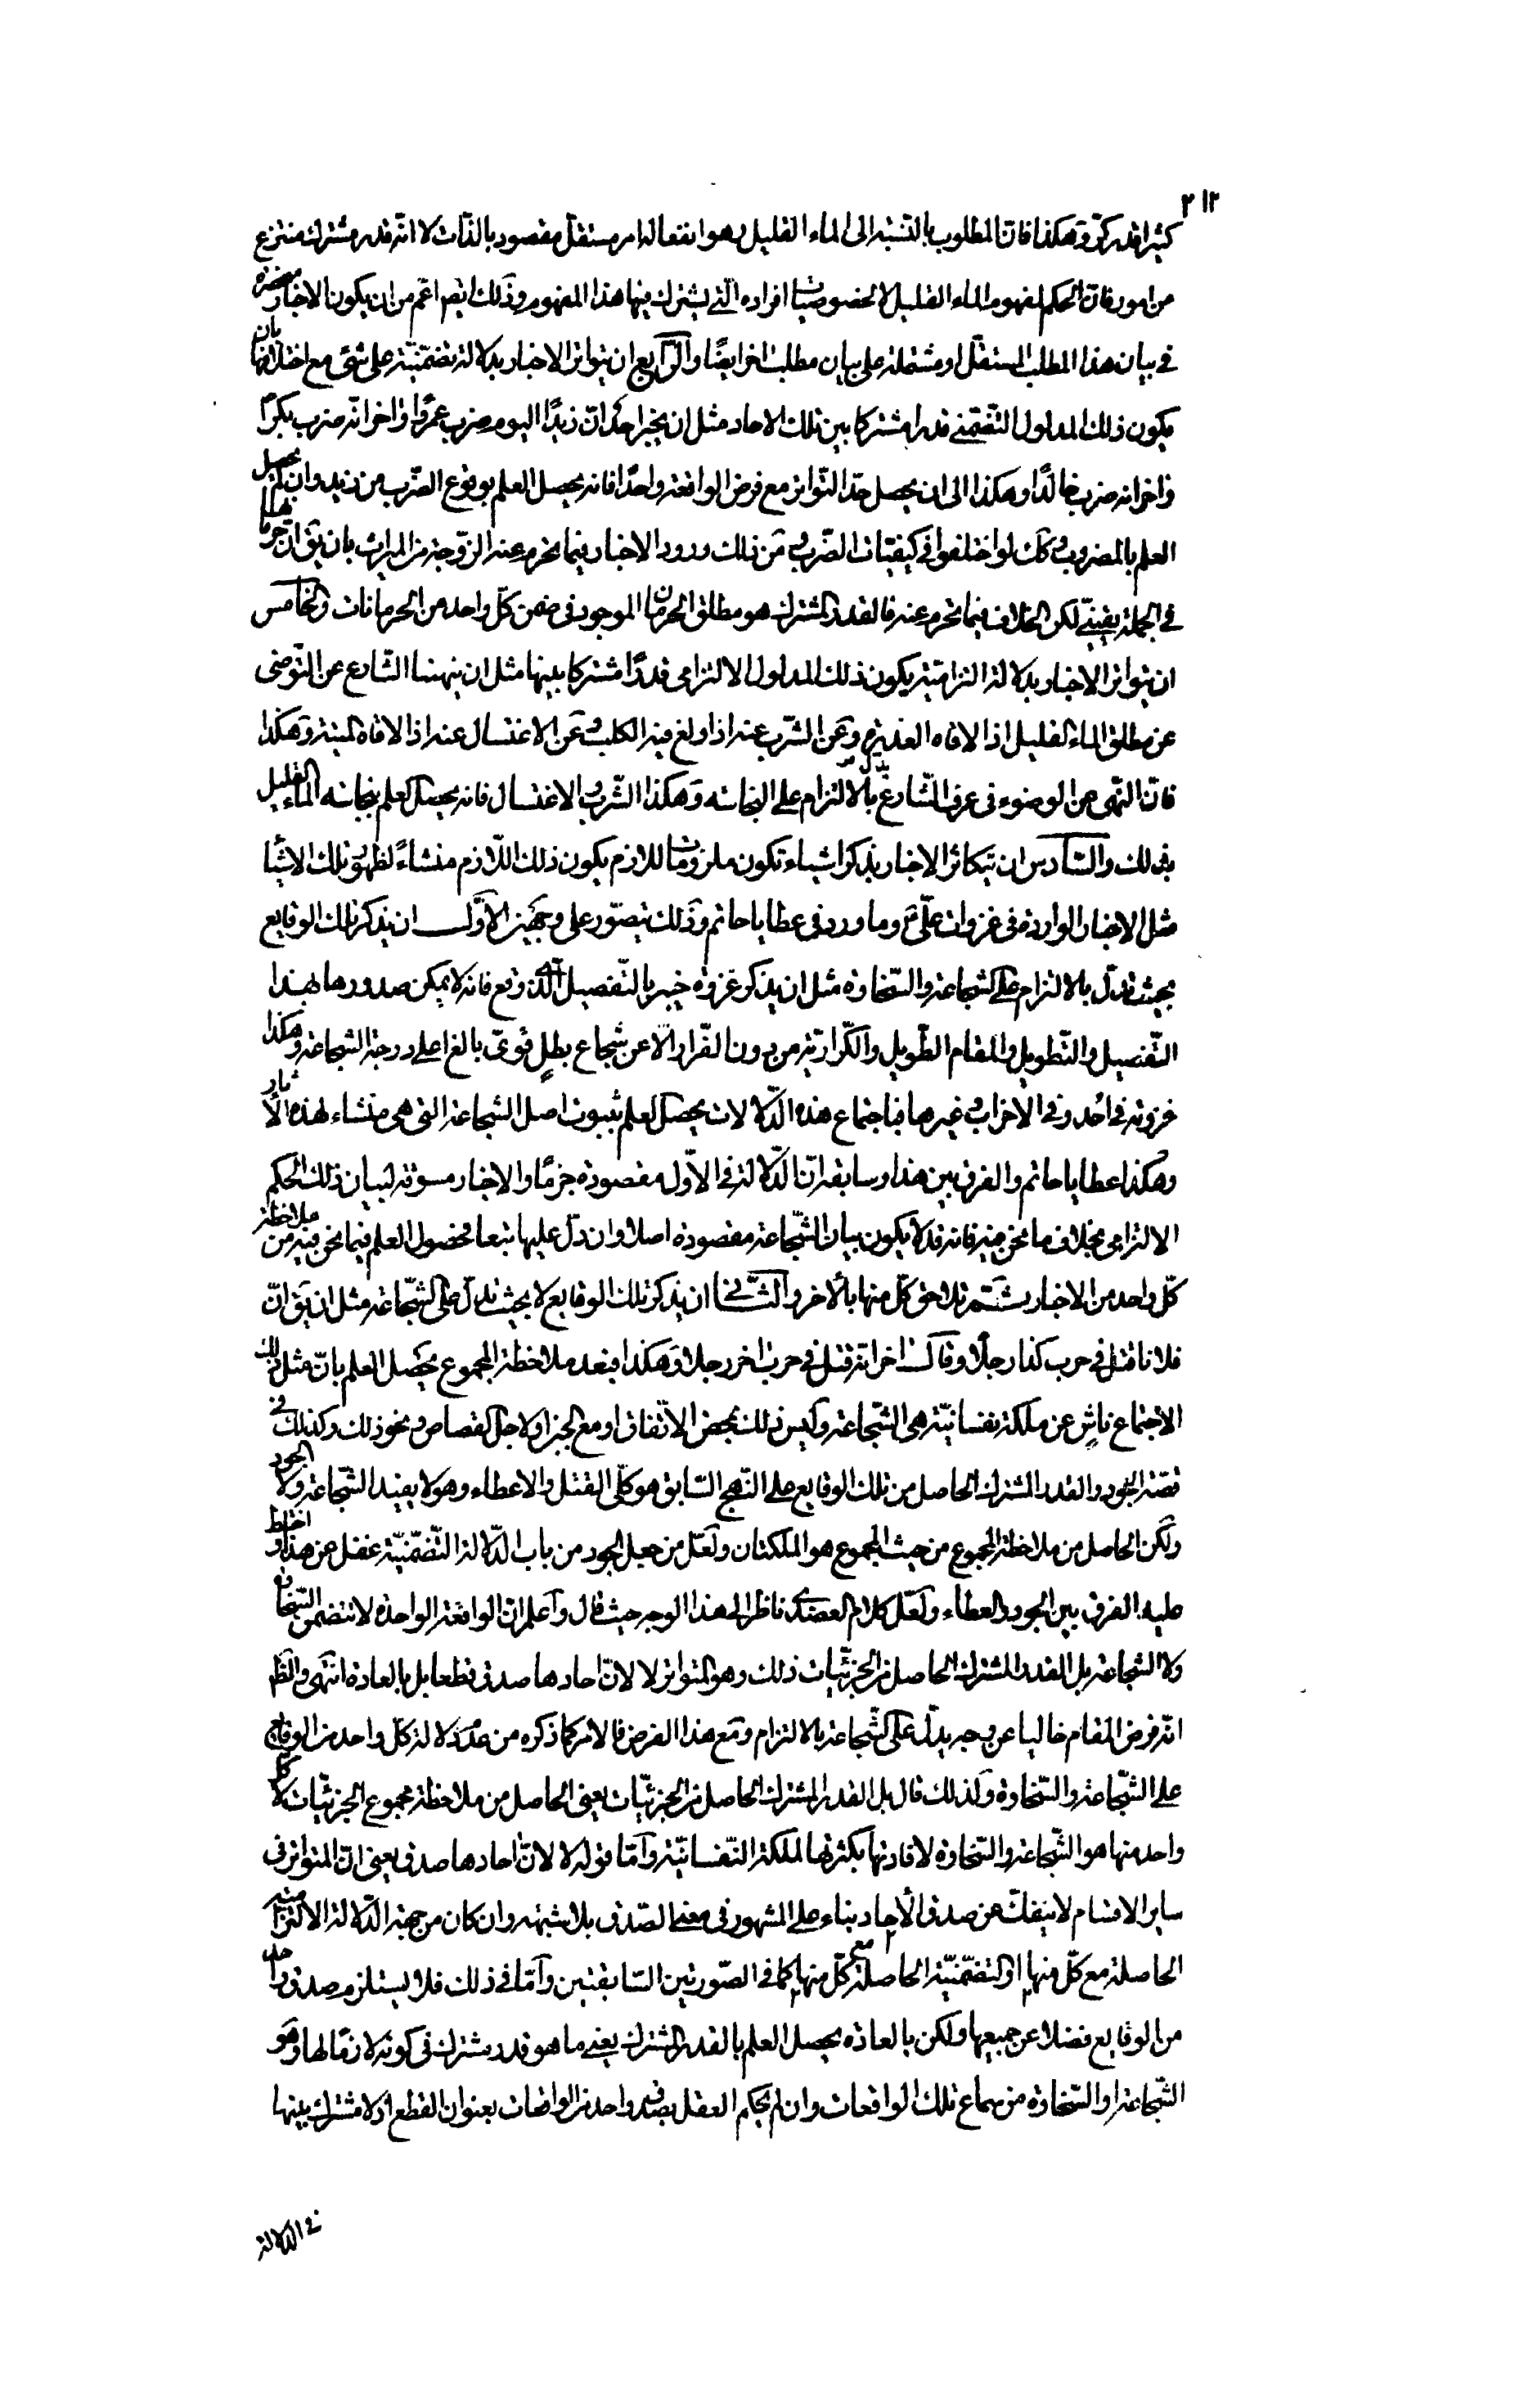 ٢١٢
كثيرا قدر كرّ وهكذا فان المطلوب بالنسبة الى الماء القليل وهو انفعاله امر مستقل مقصود بالذات لا انه قدر مشترك منتزع
من امور فان الحكم لمفهوم الماء القليل لا لخصوصيات افراده التي يشترك فيها هذا المفهوم وذلك ايضا اعم من ان يكون الاخبار منحصرة
في بيان هذا المطلب المستقل او مشتملة على بيان مطلب اخر ايضًا والرابع ان يتواتر الاخبار بدلالة تضمنيّة على شئ مع اختلافها بان
يكون ذلك المدلول التضمني قدرا مشتركا بين تلك الاحاد مثل ان يخبر احد انّ زيدًا اليوم ضرب عمروًا واخر انّه ضرب بكرًا
واخر انه ضرب خالدًا وهكذا الى ان يحصل حدّ التواتر مع فرض الواقعة واحدًا فانه يحصل العلم بوقوع الضّرب من زيد وان لم يحصل
العلم بالمضروب وكك لو اختلفوا في كيفيّات الضّرب ومن ذلك ورود الاخبار فيما يحرم عنه الزّوجة من الميراث بان يق ان حرمانها
في الجملة يقينيّ لكن الخلاف فيما تحرم عنه فالقدر المشترك هو مطلق الحرمان الموجود في ضمن كلّ واحد من الحرمانات والخامس
ان يتواتر الاخبار بدلالة التزاميّة يكون ذلك المدلول الالتزامي قدرًا مشتركا بينها مثل ان ينهينا الشّارع عن التّوضى
عن مطلق الماء القليل اذا لاقاه العذرة وعن الشّرب عنه اذا ولغ فيه الكلب وعن الاغتسال عنه اذا لاقاه الميتة وهكذا
فان النّهى عن الوضوء في عرف الشّارع يدلّ بالالتزام على النجاسة وهكذا الشّرب والاغتسال فانه يحصل العلم بنجاسة الماء القليل
بذلك والسّادس ان يتكاثر الاخبار بذكر اشياء تكون ملزومات للازم يكون ذلك اللّازم منشاءً لظهور تلك الاشيا
مثل الاخبار الواردة في غزوات علّيّ ع وما ورد في عطايا حاتم وذلك يتصوّر على وجهين الاوّل ان يذكر تلك الوقايع
بحيث تدلّ بالالتزام على الشجاعة والسّخاوة مثل ان يذكر غزوة خيبر بالتّفصيل الّذي وقع فانه لا يمكن صدورها بهذا
التّفصيل والتّطويل والمقام الطّويل والكّراريّة من دون الفّرار الّا عن شجاع بطلٍ قوىّ بالغ اعلى درجة الشجاعة وهكذا
غزوته في اُحد وفي الاحزاب وغيرها فباجتماع هذه الدّلالات يحصل العلم بثبوت اصل الشجاعة التي هي منشاء لهذه الاثار
وهكذا عطايا حاتم والفرق بين هذا وسابقه انّ الدّلالة في الاوّل مقصودة جزمًا والاخبار مسوقة لبيان ذلك الحكم
الالتزامى بخلاف ما نحن فيه فانه قد لا يكون بيان الشّجاعة مقصودة اصلا وان دلّ عليها تبعا فحصول العلم فيما نحن فيه من ملاحظة
كلّ واحد من الاخبار يستتم تلاحق كلّ منها بالاخر والثّاني ان يذكر تلك الوقايع لا بحيث تدلّ على الشّجاعة مثل ان يق انّ
فلانا قتل في حرب كذا رجلًا وقال اخر انّه قتل في حرب اخر رجلا وهكذا فبعد ملاحظة المجموع يحصل العلم بانّ مثل ذلك
الاجتماع ناشٍ عن ملكة نفسانيّة هي الشّجاعة وليس ذلك بمحض الاتّفاق او مع الجبن او لاجل القصاص ونحو ذلك وكذلك في
قصّة الجود والقدر المشترك الحاصل من تلك الوقايع على النّهج السّابق هو كلّى القتل والاعطاء وهو لا يفيد الشّجاعة ولا الجود
ولكن الحاصل من ملاحظة المجموع من حيث المجموع هو الملكتان ولعّل من جعل الجود من باب الدّلالة التّضمّنيّة غفل عن هذا واختلط
عليه الفرق بين الجود والعطاء ولعّل كلام العضدى ناظر الى هذا الوجه حيث قال واعلم انّ الواقعة الواحدة لا تتضمن السّخاوة
ولا الشجاعة بل القدر المشترك الحاصل من الجزئيّات ذلك وهو المتواتر لا لانّ احادها صدق قطعا بل بالعادة انتهى والظ
انّه فرض المقام خاليا عن وجه يدلّ على الشّجاعة بالالتزام ومع هذا الفرض فالامر كما ذكره من عدم دلالة كلّ واحد من الوقايع
على الشّجاعة والسّخاوة ولذلك قال بل القدر المشترك الحاصل من الجزئيّات يعنى الحاصل من ملاحظة مجموع الجزئيّات لا كل
واحد منها هو الشّجاعة والسّخاوة لافادتها بكثرتها الملكة النّفسانيّة وامّا قوله لا لانّ احادها صدق يعنى انّ المتواتر فى
ساير الاقسام لا ينفكّ عن صدق الأحاد بناء على المشهور فى معنى الصّدق بلا شبهة وان كان من جهة الدّلالة الالتزامية
الحاصلة مع كلّ منها او التضمّنيّة الحاصلة مع كلّ منها كما في الصّورتين السّابقتين وامّا في ذلك فلا يستلزم صدق واحد
من الوقايع فضلا عن جميعها ولكن بالعادة يحصل العلم بالقدر المشترك يعنى ما هو قدر مشترك في كونه لازمًا لها وهو
الشّجاعة او السّخاوة من سماع تلك الواقعات وان لم يحكم العقل بصدق واحد من الواقعات بعنوان القطع اذ لا مشترك بينها
في الدلالة